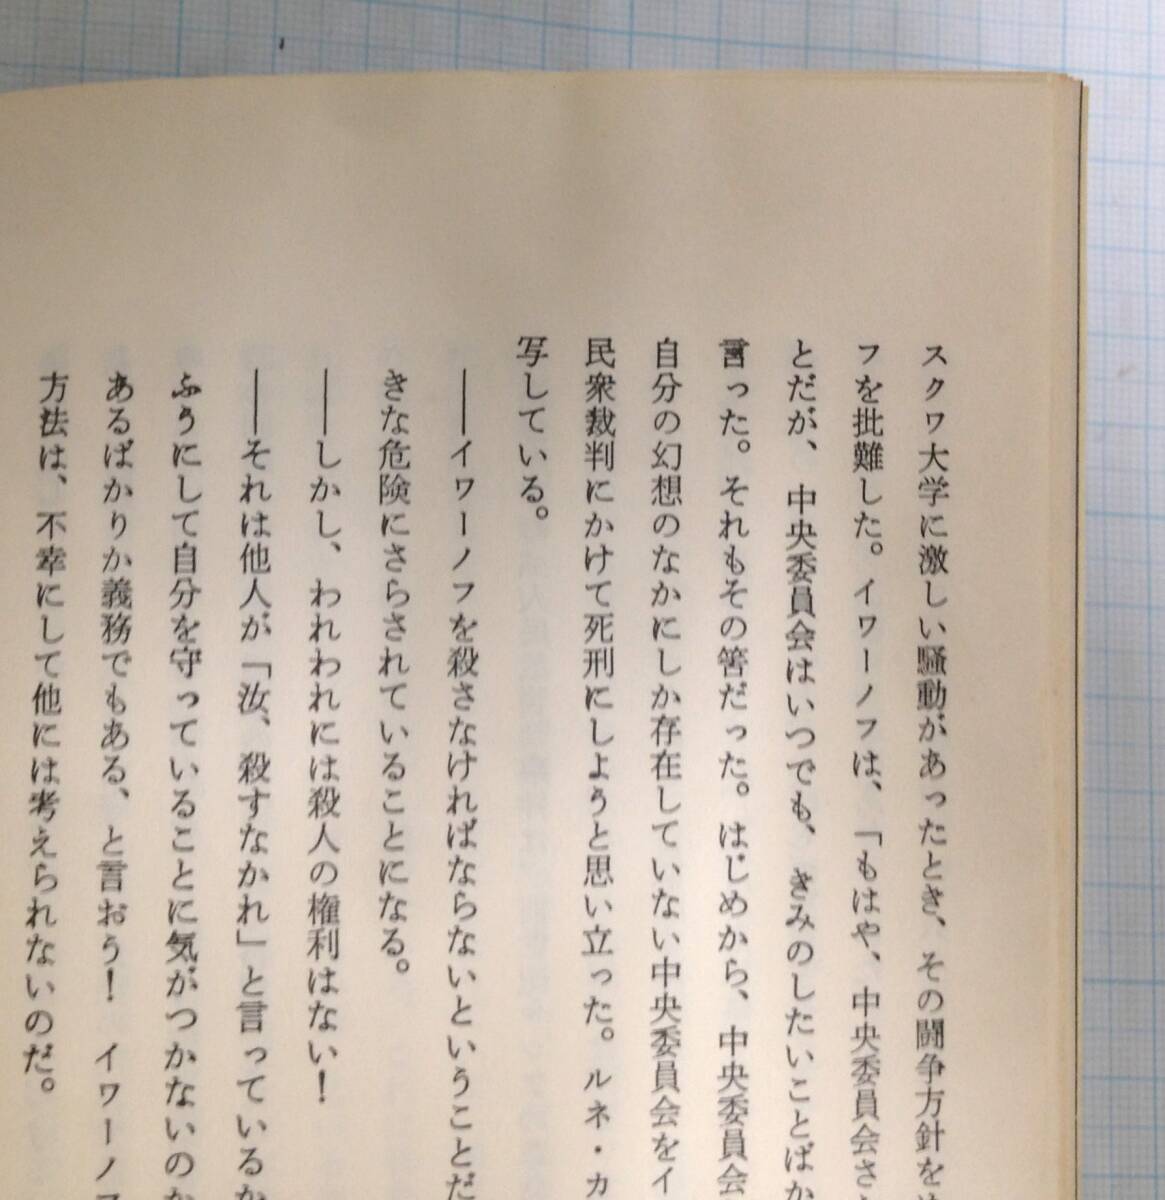 スクワ大学に激しい騒動があったとき、その闘争方針をめ
フを批難した。イワーノフは、「もはや、中央委員会さえ
とだが、中央委員会はいつでも、きみのしたいことばか
言った。それもその筈だった。はじめから、中央委員会
自分の幻想のなかにしか存在していない中央委員会をイ
民衆裁判にかけて死刑にしようと思い立った。ルネ・カ
写している。
――イワーノフを殺さなければならないということだ
きな危険にさらされていることになる。
――しかし、われわれには殺人の権利はない！
――それは他人が「汝、殺すなかれ」と言っているか
ふうにして自分を守っていることに気がつかないのか
あるばかりか義務でもある、と言おう！　イワーノフ
方法は、不幸にして他には考えられないのだ。